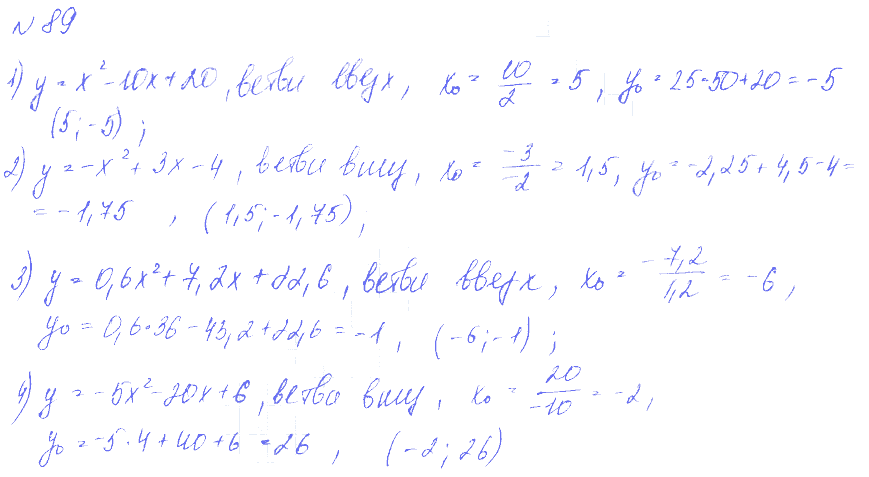 № 89
1) y = x² - 10x + 20, ветви вверх, x₀ = 10/2 = 5, y₀ = 25-50+20 = -5
(5; -5);
2) y = -x² + 3x - 4, ветви вниз, x₀ = -3/-2 = 1,5, y₀ = -2,25 + 4,5-4 =
= -1,75, (1,5; -1,75);
3) y = 0,6x² + 7,2x + 22,6, ветви вверх, x₀ = -7,2/1,2 = -6,
y₀ = 0,6·36 - 43,2 + 22,6 = -1, (-6; -1);
4) y = -5x² - 20x + 6, ветви вниз, x₀ = 20/-10 = -2,
y₀ = -5·4 + 40 + 6 = 26, (-2; 26)